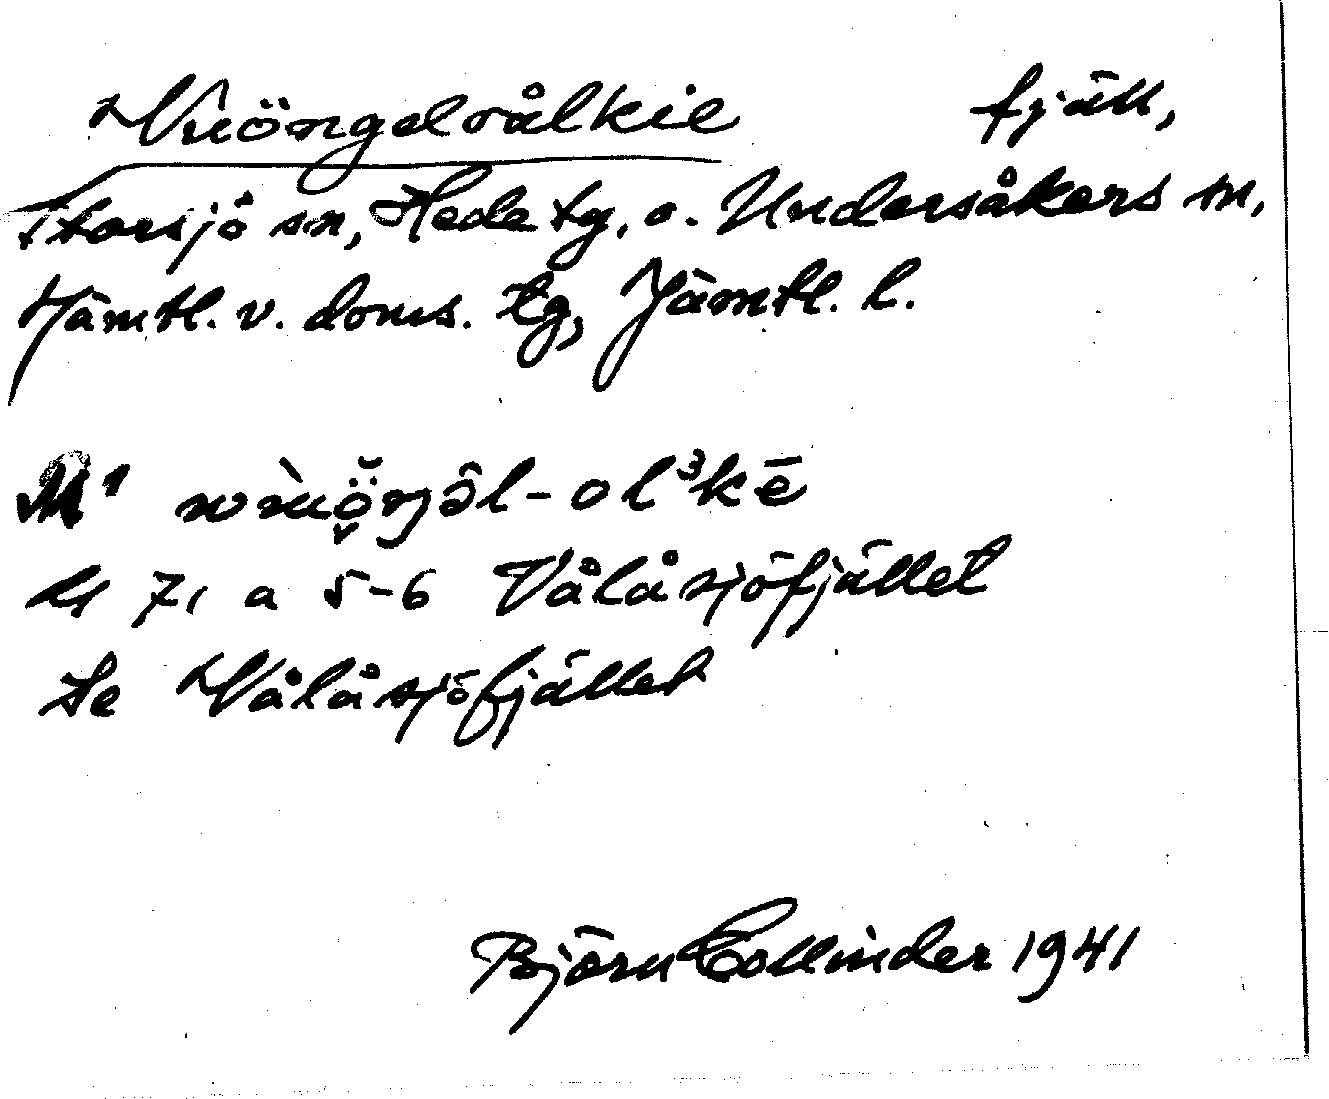 Vuöngelvålkie fjäll,
Storsjö sn, Hede tg, o. Undersåkers sn,
Jämtl. v. doms. tg, Jämtl. l.
M1 wùö̯̆ŋə̂l-ol³kē
k1 71 a 5-6 Vålåsjöfjället
Se Vålåsjöfjället
Björn Collinder 1941